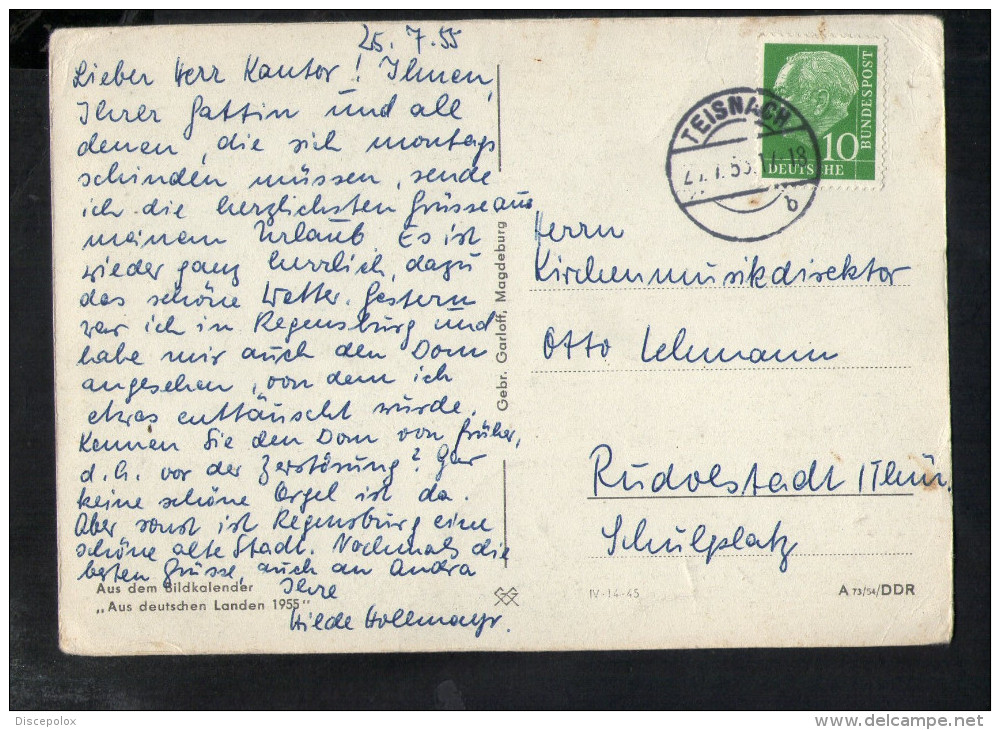 25.7.55
Lieber Herr Kantor! Ihnen,
Ihrer Gattin und all
denen, die sich montags
schinden müssen, sende
ich die herzlichsten Grüsse aus
meinem Urlaub. Es ist
wieder ganz herrlich, dazu
das schöne Wetter. Gestern
war ich in Regensburg und
habe mir auch den Dom
angesehen, von dem ich
etwas enttäuscht wurde.
Kennen Sie den Dom von früher,
d.h. vor der Zerstörung? Gar
keine schöne Orgel ist da.
Aber sonst ist Regensburg eine
schöne alte Stadt. Nochmals die
besten Grüsse, auch an Andra
Ihre
Hilde Hollmayr.
Aus dem Bildkalender
„Aus deutschen Landen 1955"
Gebr. Garloff, Magdeburg
TEISNACH
17-18
b
10
DEUTSCHE
BUNDESPOST
Herrn
Kirchenmusikdirektor
Otto Lehmann
Rudolstadt /Thür.
Schulplatz
IV-14-45
A 73/54/DDR
Discepolox
delcampe.net